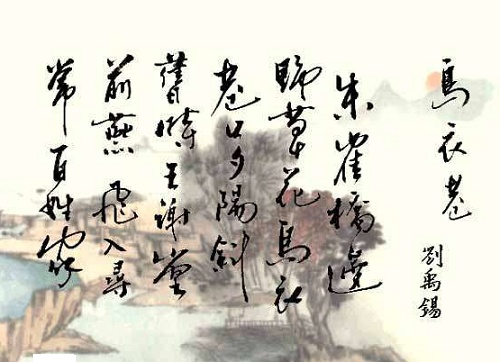 烏衣巷
劉禹錫
朱雀橋邊
野草花烏衣
巷口夕陽斜
舊時王謝堂
前燕飛入尋
常百姓家